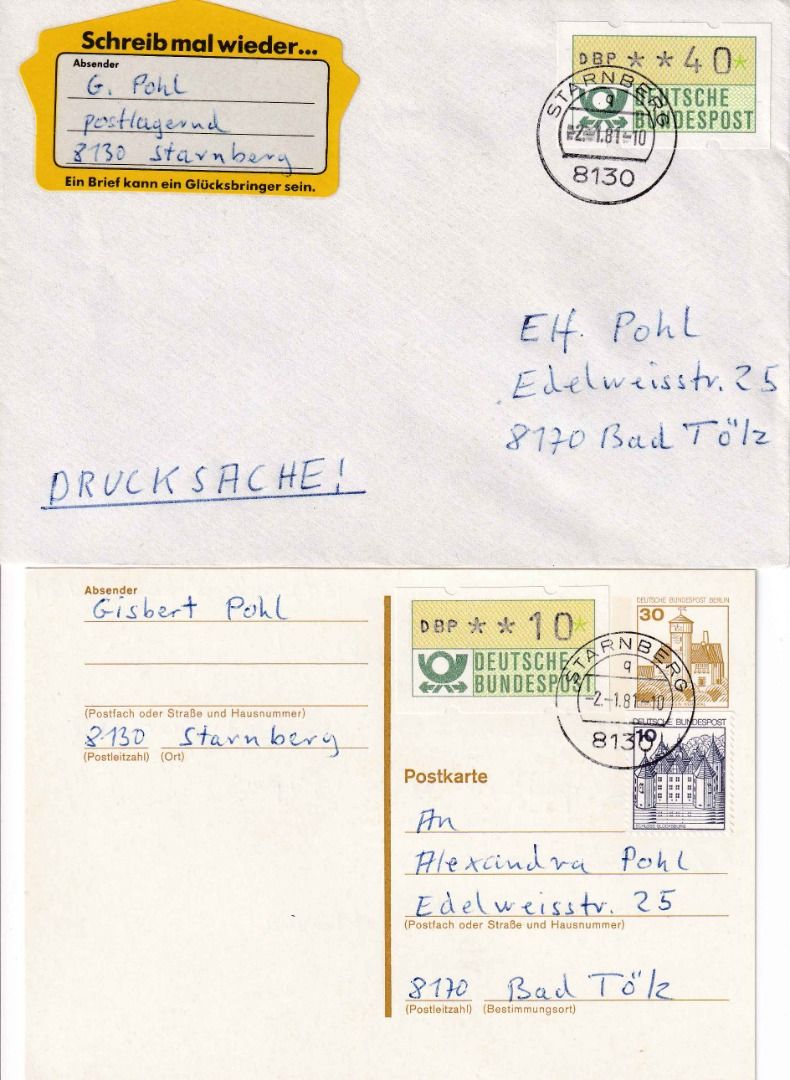 Schreib mal wieder...
Absender
G. Pohl
postlagernd
8130 Starnberg
Ein Brief kann ein Glücksbringer sein.
DBP * * 40 *
DEUTSCHE
BUNDESPOST
STARNBERG
q
-2.-1.81-10
8130
Elf. Pohl
Edelweisstr. 25
8170 Bad Tölz
DRUCKSACHE!
Absender
Gisbert Pohl
(Postfach oder Straße und Hausnummer)
8130 Starnberg
(Postleitzahl) (Ort)
DBP * * 10 *
DEUTSCHE
BUNDESPOST
DEUTSCHE BUNDESPOST BERLIN
30
STARNBERG
q
-2.-1.81-10
8130
DEUTSCHE BUNDESPOST
10
SCHLOSS GLÜCKSBURG
Postkarte
An
Alexandra Pohl
Edelweisstr. 25
(Postfach oder Straße und Hausnummer)
8170 Bad Tölz
(Postleitzahl) (Bestimmungsort)